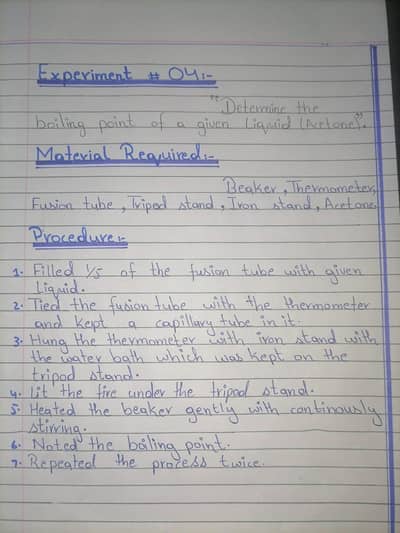 Experiment # 04:-
"Determine the
boiling point of a given Liquid (Acetone)".
Material Required:-
Beaker, Thermometer,
Fusion tube, Tripod stand, Iron stand, Acetone.
Procedure:-
1. Filled 1/5 of the fusion tube with given
Liquid.
2. Tied the fusion tube with the thermometer
and kept a capillary tube in it.
3. Hung the thermometer with iron stand with
the water bath which was kept on the
tripod stand.
4. lit the fire under the tripod stand.
5. Heated the beaker gently with continously
stirring.
6. Noted the boiling point.
7. Repeated the process twice.